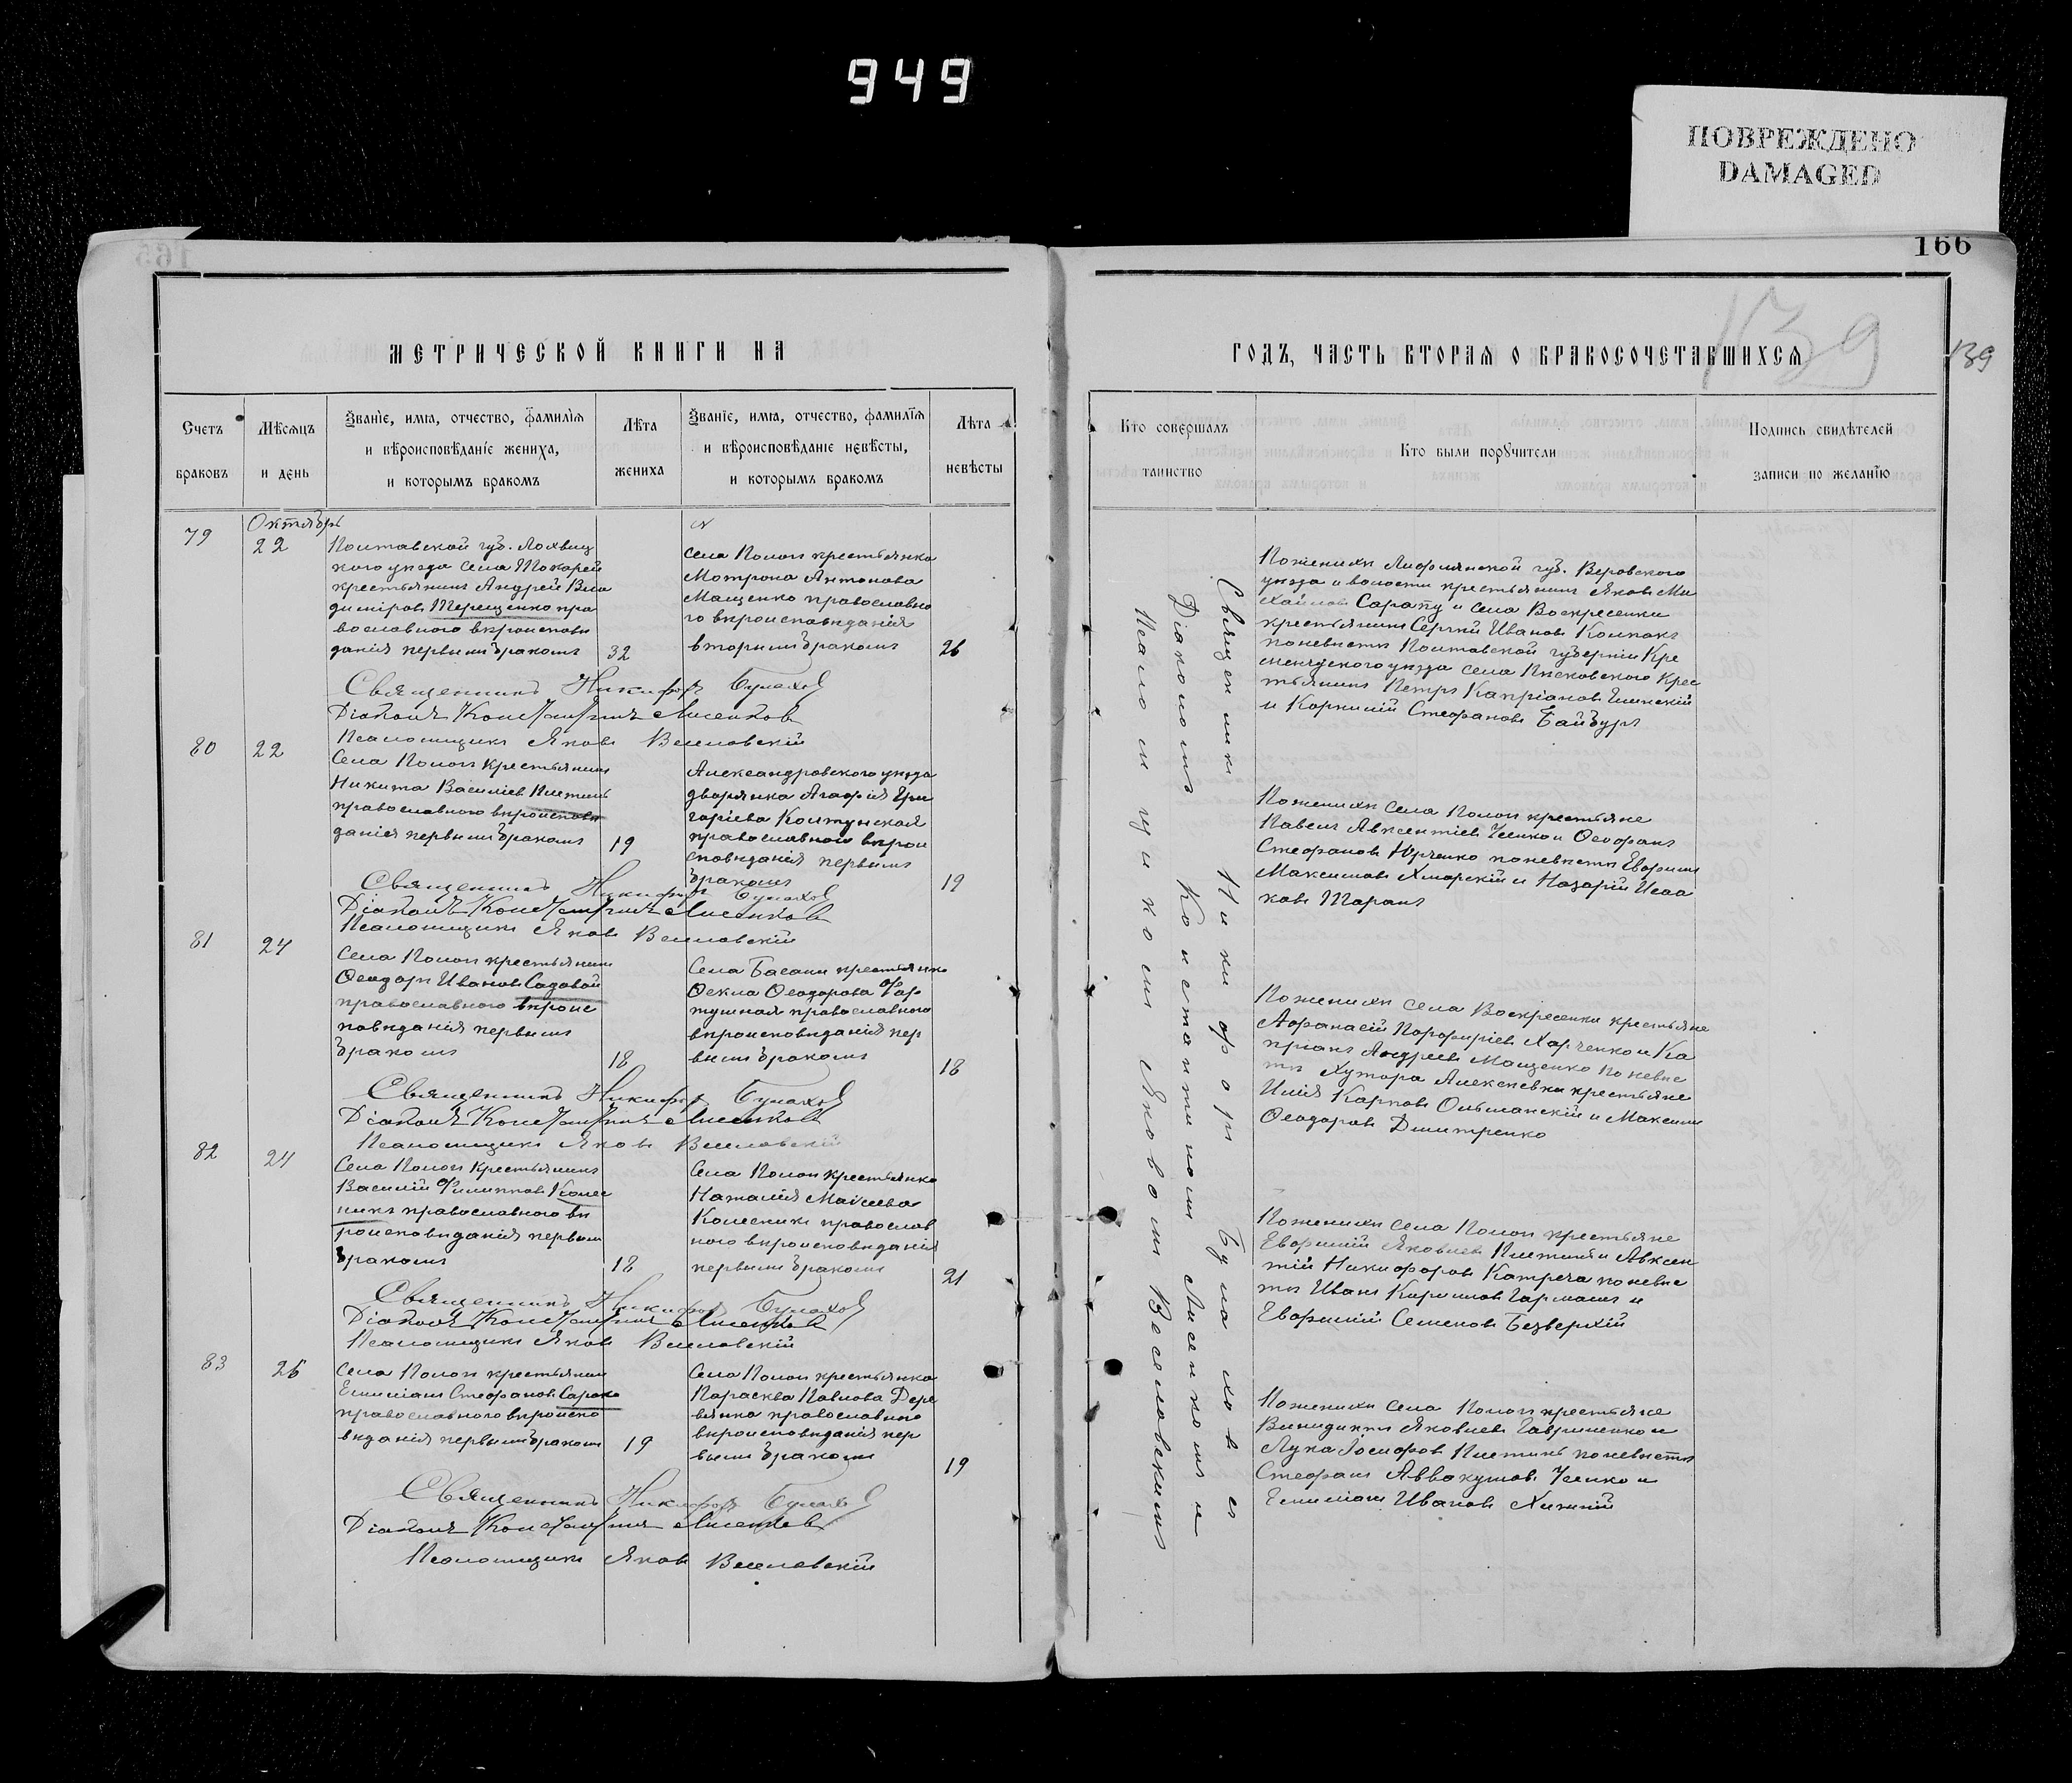 949
ПОВРЕЖДЕНО
DAMAGED
166
139
139
МЕТРИЧЕСКОЙ КНИГИ НА
ГОДЪ, ЧАСТЬ ВТОРАЯ О БРАКОСОЧЕТАВШИХСЯ
Счетъ браковъ
Мѣсяцъ и день
Званіе, имя, отчество, фамилія
и вѣроисповѣданіе жениха,
и которымъ бракомъ
Лѣта жениха
Званіе, имя, отчество, фамилія
и вѣроисповѣданіе невѣсты,
и которымъ бракомъ
Лѣта невѣсты
Кто совершалъ
таинство
Кто были поручители
Подпись свидѣтелей
записи по желанію
79
Октябрь
22
Полтавской губ. Лохвиц
кого уезда села Токарей
крестьянинъ Андрей Вла
диміровъ Терещенко пра
вославного вѣроисповѣ
данія первымъ бракомъ
32
села Пологи крестьянка
Мотрона Антонова
Мащенко православно
го вѣроисповѣданія
вторымъ бракомъ
26
Священникъ Никифоръ Булахов
Діаконъ Константинъ Лисенков
Псаломщикъ Яковъ Веселовскій
80
22
Села Пологи крестьянинъ
Никита Василіевъ Плетинь
православного вѣроисповѣ
данія первымъ бракомъ
19
Александровского уѣзда
дворянка Агафія Гри
горіева Колтунская
православного вѣрои
сповѣданія первымъ
бракомъ
19
Священникъ Никифоръ Булахов
Діаконъ Константинъ Лисенков
Псаломщикъ Яковъ Веселовскій
81
24
Села Пологи крестьянинъ
Ѳеодоръ Ивановъ Садовой
православного вѣроис
повѣданія первымъ
бракомъ
18
Села Басани крестьянка
Ѳекла Ѳеодорова Фар
тушная православного
вѣроисповѣданія пер
вымъ бракомъ
18
Священникъ Никифоръ Булахов
Діаконъ Константинъ Лисенков
Псаломщикъ Яковъ Веселовскій
82
24
Села Пологи крестьянинъ
Василій Филипповъ Колес
никъ православного вѣ
роисповѣданія первымъ
бракомъ
18
Села Пологи крестьянка
Наталія Моисеева
Колесникъ православ
ного вѣроисповѣданія
первымъ бракомъ
21
Священникъ Никифоръ Булахов
Діаконъ Константинъ Лисенков
Псаломщикъ Яковъ Веселовскій
83
26
Села Пологи крестьянинъ
Емиліанъ Стефановъ Сорока
православного вѣроиспо
вѣданія первымъ бракомъ
19
Села Пологи крестьянка
Параскева Павлова Дере
вянко православного
вѣроисповѣданія пер
вымъ бракомъ
19
Священникъ Никифоръ Булахов
Діаконъ Константинъ Лисенков
Псаломщикъ Яковъ Веселовскій
Священникъ Никифоръ Булаховъ съ
Діакономъ Константиномъ Лисенкомъ и
Псаломщикомъ Яковомъ Веселовскимъ
По женихѣ Лифлянской губ. Веровского
уѣзда и волости крестьянинъ Яковъ Ми
хайловъ Сарапу и села Воскресенки
крестьянинъ Сергій Ивановъ Колпакъ
по невѣстѣ Полтавской губерніи Кре
менчугского уѣзда села Песковского крес
тьянинъ Петръ Капріановъ
и Корнилій Стефановъ Байбузъ
По женихѣ села Пологи крестьяне
Павелъ Авксентіевъ и Ѳеофанъ
Стефановъ Юрченко по невѣстѣ Евфимъ
Максимовъ Хморскій и Назарій Исаа
ковъ Таранъ
По женихѣ села Воскресенки крестьяне
Афанасій Порфиріевъ Харченко и Ка
пріанъ Андреевъ Мащенко по невѣс
тѣ Хутора Алексѣевки крестьяне
Илія Карповъ Ольшанскій и Максимъ
Ѳеодоровъ Дмитренко
По женихѣ села Пологи крестьяне
Евфимій Яковлевъ Плетинь и Авксен
тій Никифоровъ Катреча по невѣс
тѣ Иванъ Кириловъ Гармашъ и
Евфимій Семеновъ Безверхій
По женихѣ села Пологи крестьяне
Винидиктъ Яковлевъ Гавриленко и
Лука Іосифовъ Плетинь по невѣстѣ
Стефанъ Аввакумовъ и
Емиліанъ Ивановъ Хижній